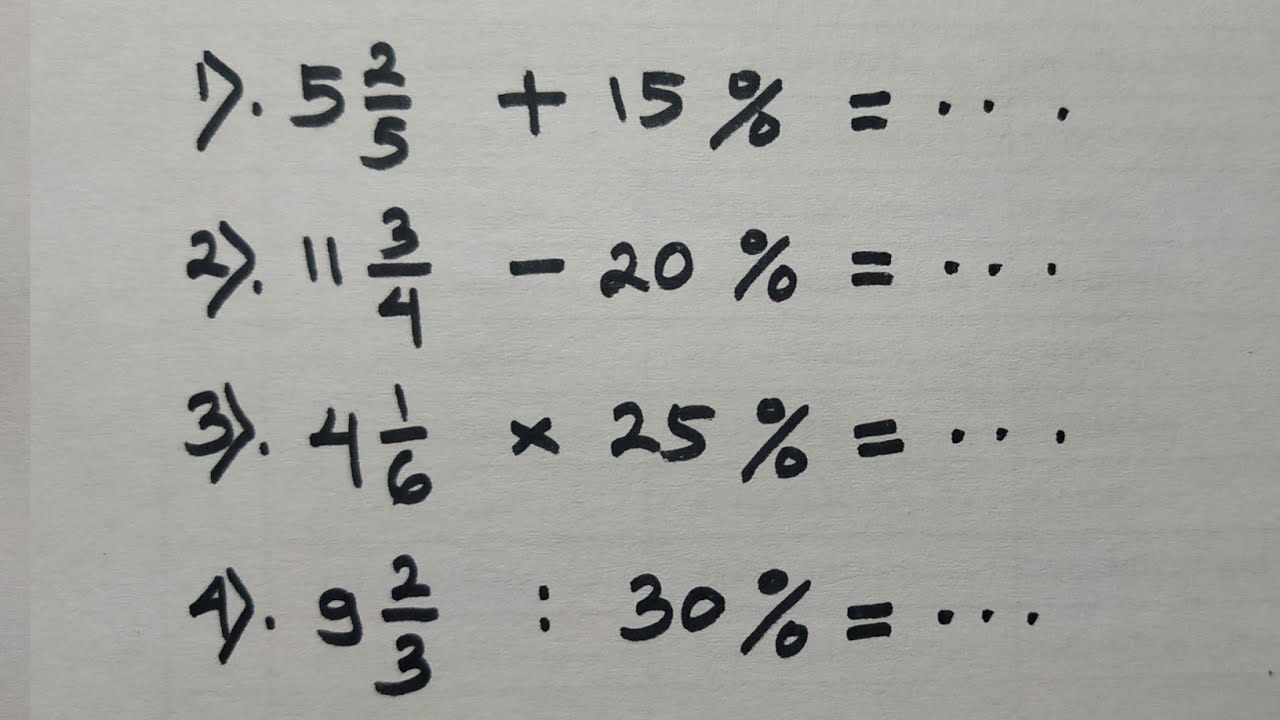 1). 5 2/5 + 15 % = ....
2). 11 3/4 - 20 % = ...
3). 4 1/6 × 25 % = ...
4). 9 2/3 : 30 % = ...